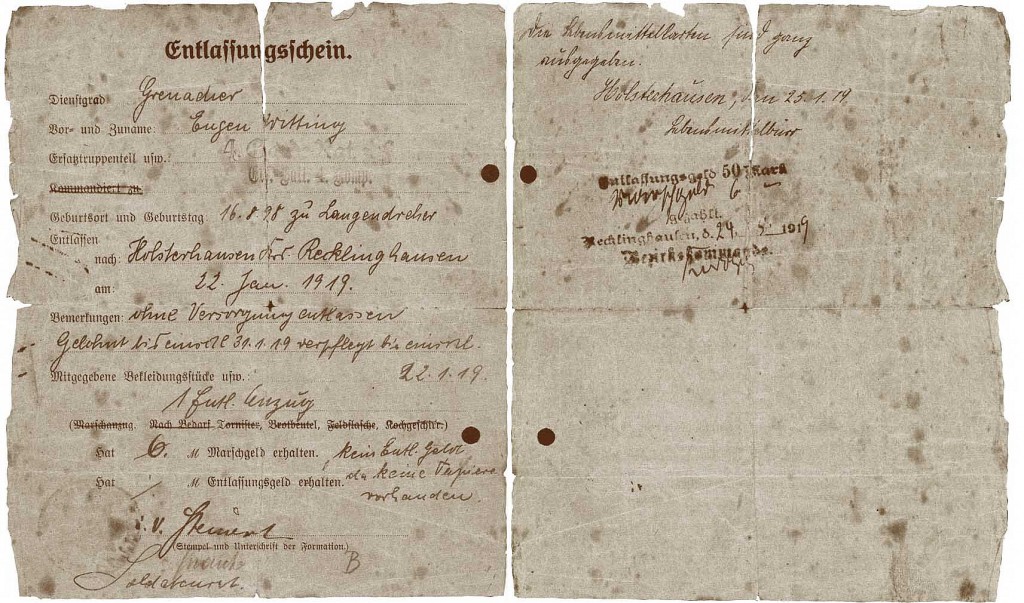 Entlassungsschein.
Dienstgrad Grenadier
Vor- und Zuname: Eugen Witting
Ersatztruppenteil usw.:
Kommandiert zu
Geburtsort und Geburtstag 16.8.98 zu Langendreher
Entlassen
nach: Holsterhausen Krs Recklinghausen
am: 22. Jan. 1919.
Bemerkungen: ohne Versorgung entlassen
Gelöhnt bis einschl. 31.1.19 verpflegt bis einschl.
Mitgegebene Bekleidungsstücke usw.: 22.1.19.
1 Entl. Anzug
(Marschanzug. Nach Bedarf Tornister, Brotbeutel, Feldflasche, Kochgeschirr.)
Hat 6. M Marschgeld erhalten. kein Entl. Geld
Hat M Entlassungsgeld erhalten. da keine Papiere
vorhanden.
(Stempel und Unterschrift der Formation.)
B
Soldatenrat.
Die Lebensmittelkarten sind ganz
ausgegeben.
Holsterhausen, den 25.1.19.
Lebensmittelbüro
Entlassungsgeld 50 Mark
gezahlt.
Recklinghausen, d. 29 1919
Bezirkskommando.